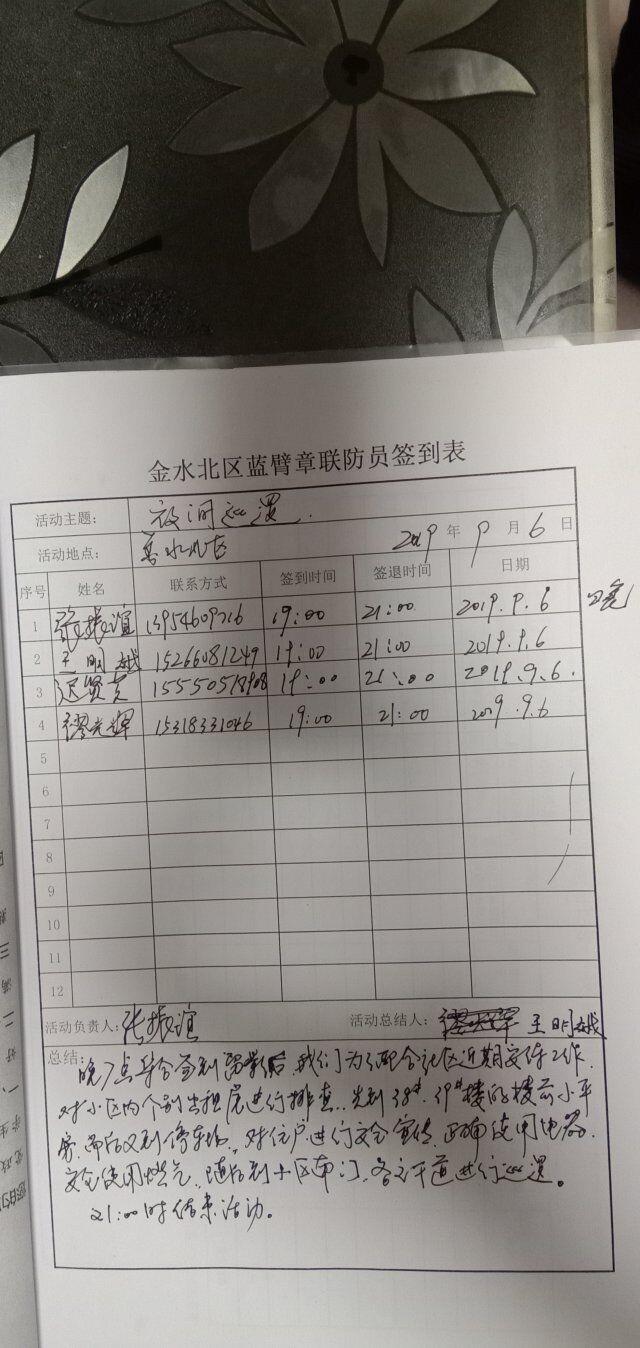 金水北区蓝臂章联防员签到表
活动主题: 夜间巡逻.
活动地点: 金水北区 2019 年 9 月 6 日
序号 姓名 联系方式 签到时间 签退时间 日期
1 张振谊 13954609216 19:00 21:00 2019.9.6
2 王明娥 15266081249 19:00 21:00 2019.9.6
3 迟贤芝 19:00 21:00 2019.9.6.
4 缪光辉 15318331046 19:00 21:00 2019.9.6
5
6
7
8
9
10
11
12
活动负责人: 张振谊 活动总结人: 王明娥
总结: 晚7点集合签到 后,我们为了配合社区近期 工作.
对小区内个别出租房进行排查.先到38#.39#楼的楼前小平
房.而后又到停车场.对住户进行安全宣传.正确使用电器.
安全使用燃气.随后到小区南门.各主干道进行巡逻。
21:00时结束活动。